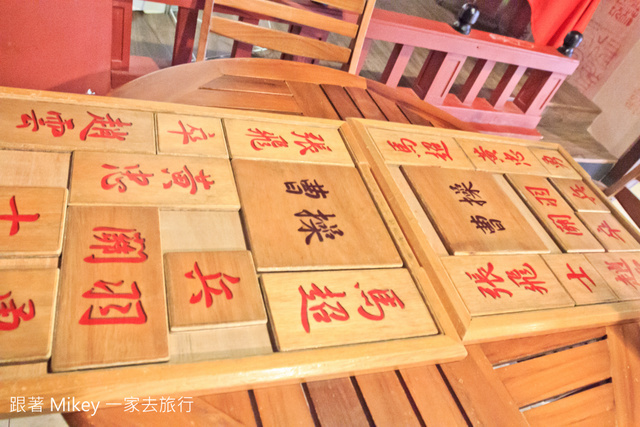 趙雲
卒
張飛
黃忠
曹操
士
關羽
兵
馬超
勇
曹操
關羽
張飛
士
跟著 Mikey 一家去旅行